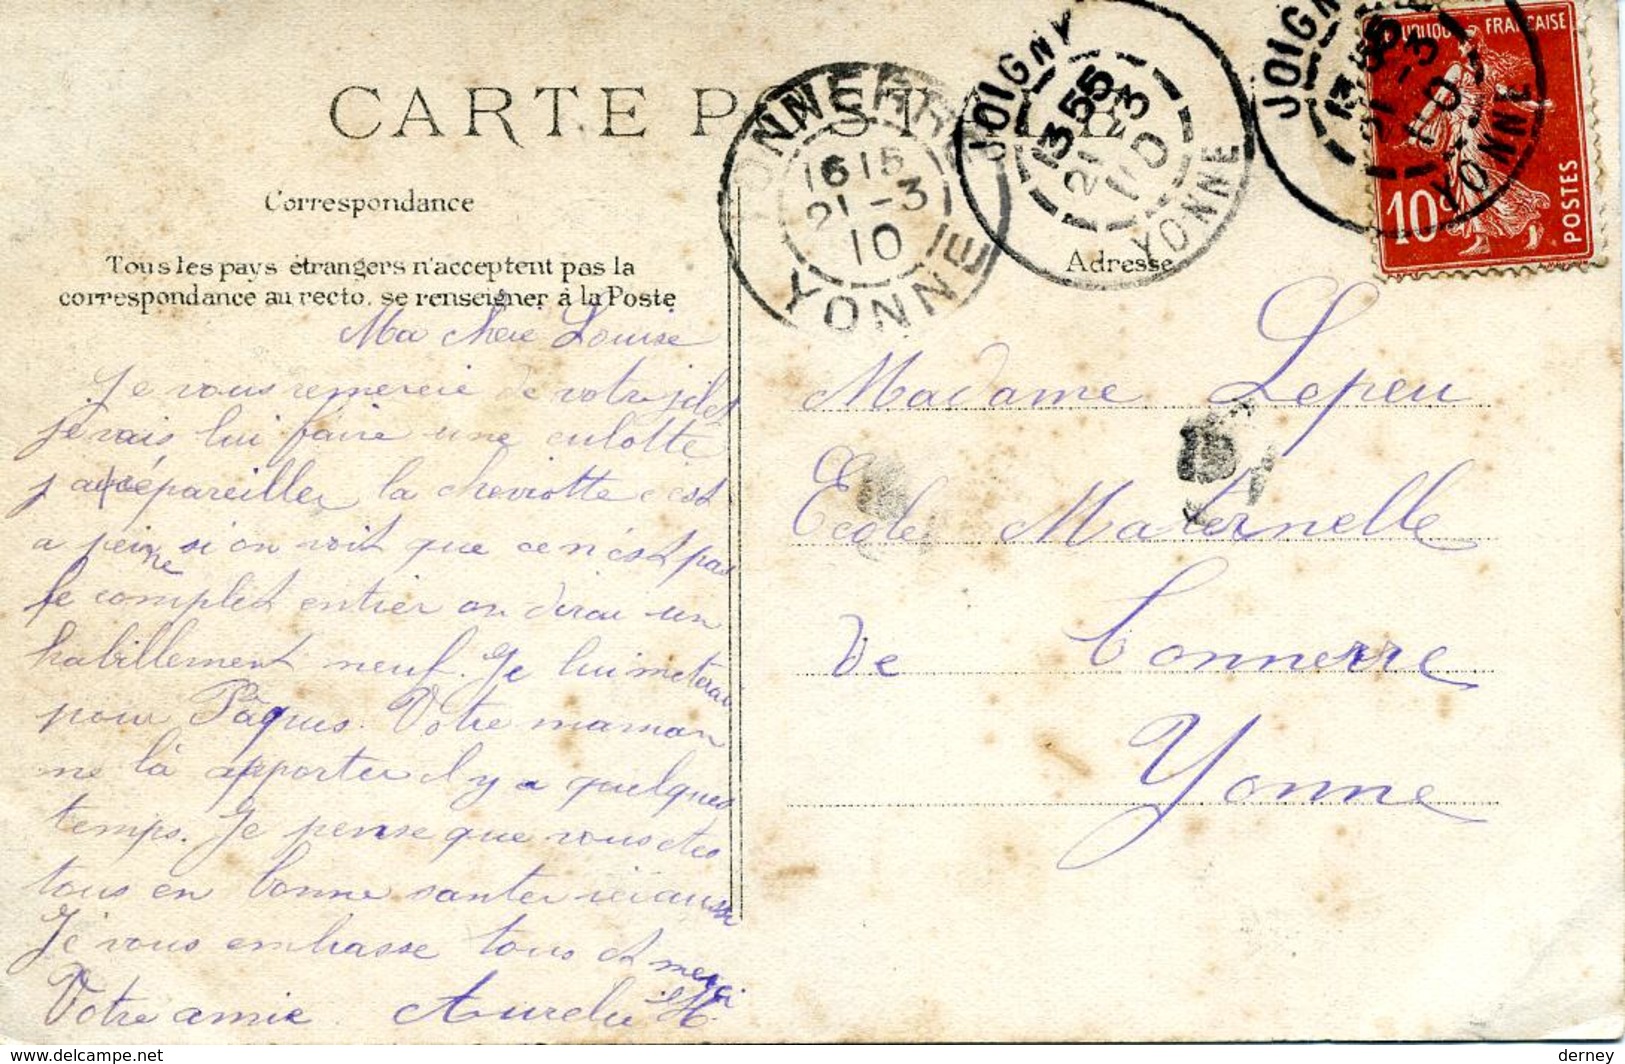 CARTE POSTALE
TONNERRE
1615
21-3
10
YONNE
JOIGNY
1355
21 3
10
YONNE
JOIGNY
1355
21-3
10
YONNE
FRANÇAISE
10c
POSTES
Correspondance
Adresse
Tous les pays étrangers n'acceptent pas la
correspondance au recto. se renseigner à la Poste
Ma chere Louise
Je vous remercie de votre jilet
je vais lui faire une culotte
j'ai répareiller la cheviotte c'est
a peine si on voit que ce n'est pas
le complet entier on dirai un
habillement neuf. Je lui meterai
pour Pâques. Votre maman
me là apporter il y a quelques
temps. Je pense que vous etes
tous en bonne santer ici aussi
Je vous embrasse tous et merci
Votre amie. Aurelie H.
Madame Lepeu
Ecole Maternelle
de Tonnerre
Yonne
www.delcampe.net
derney